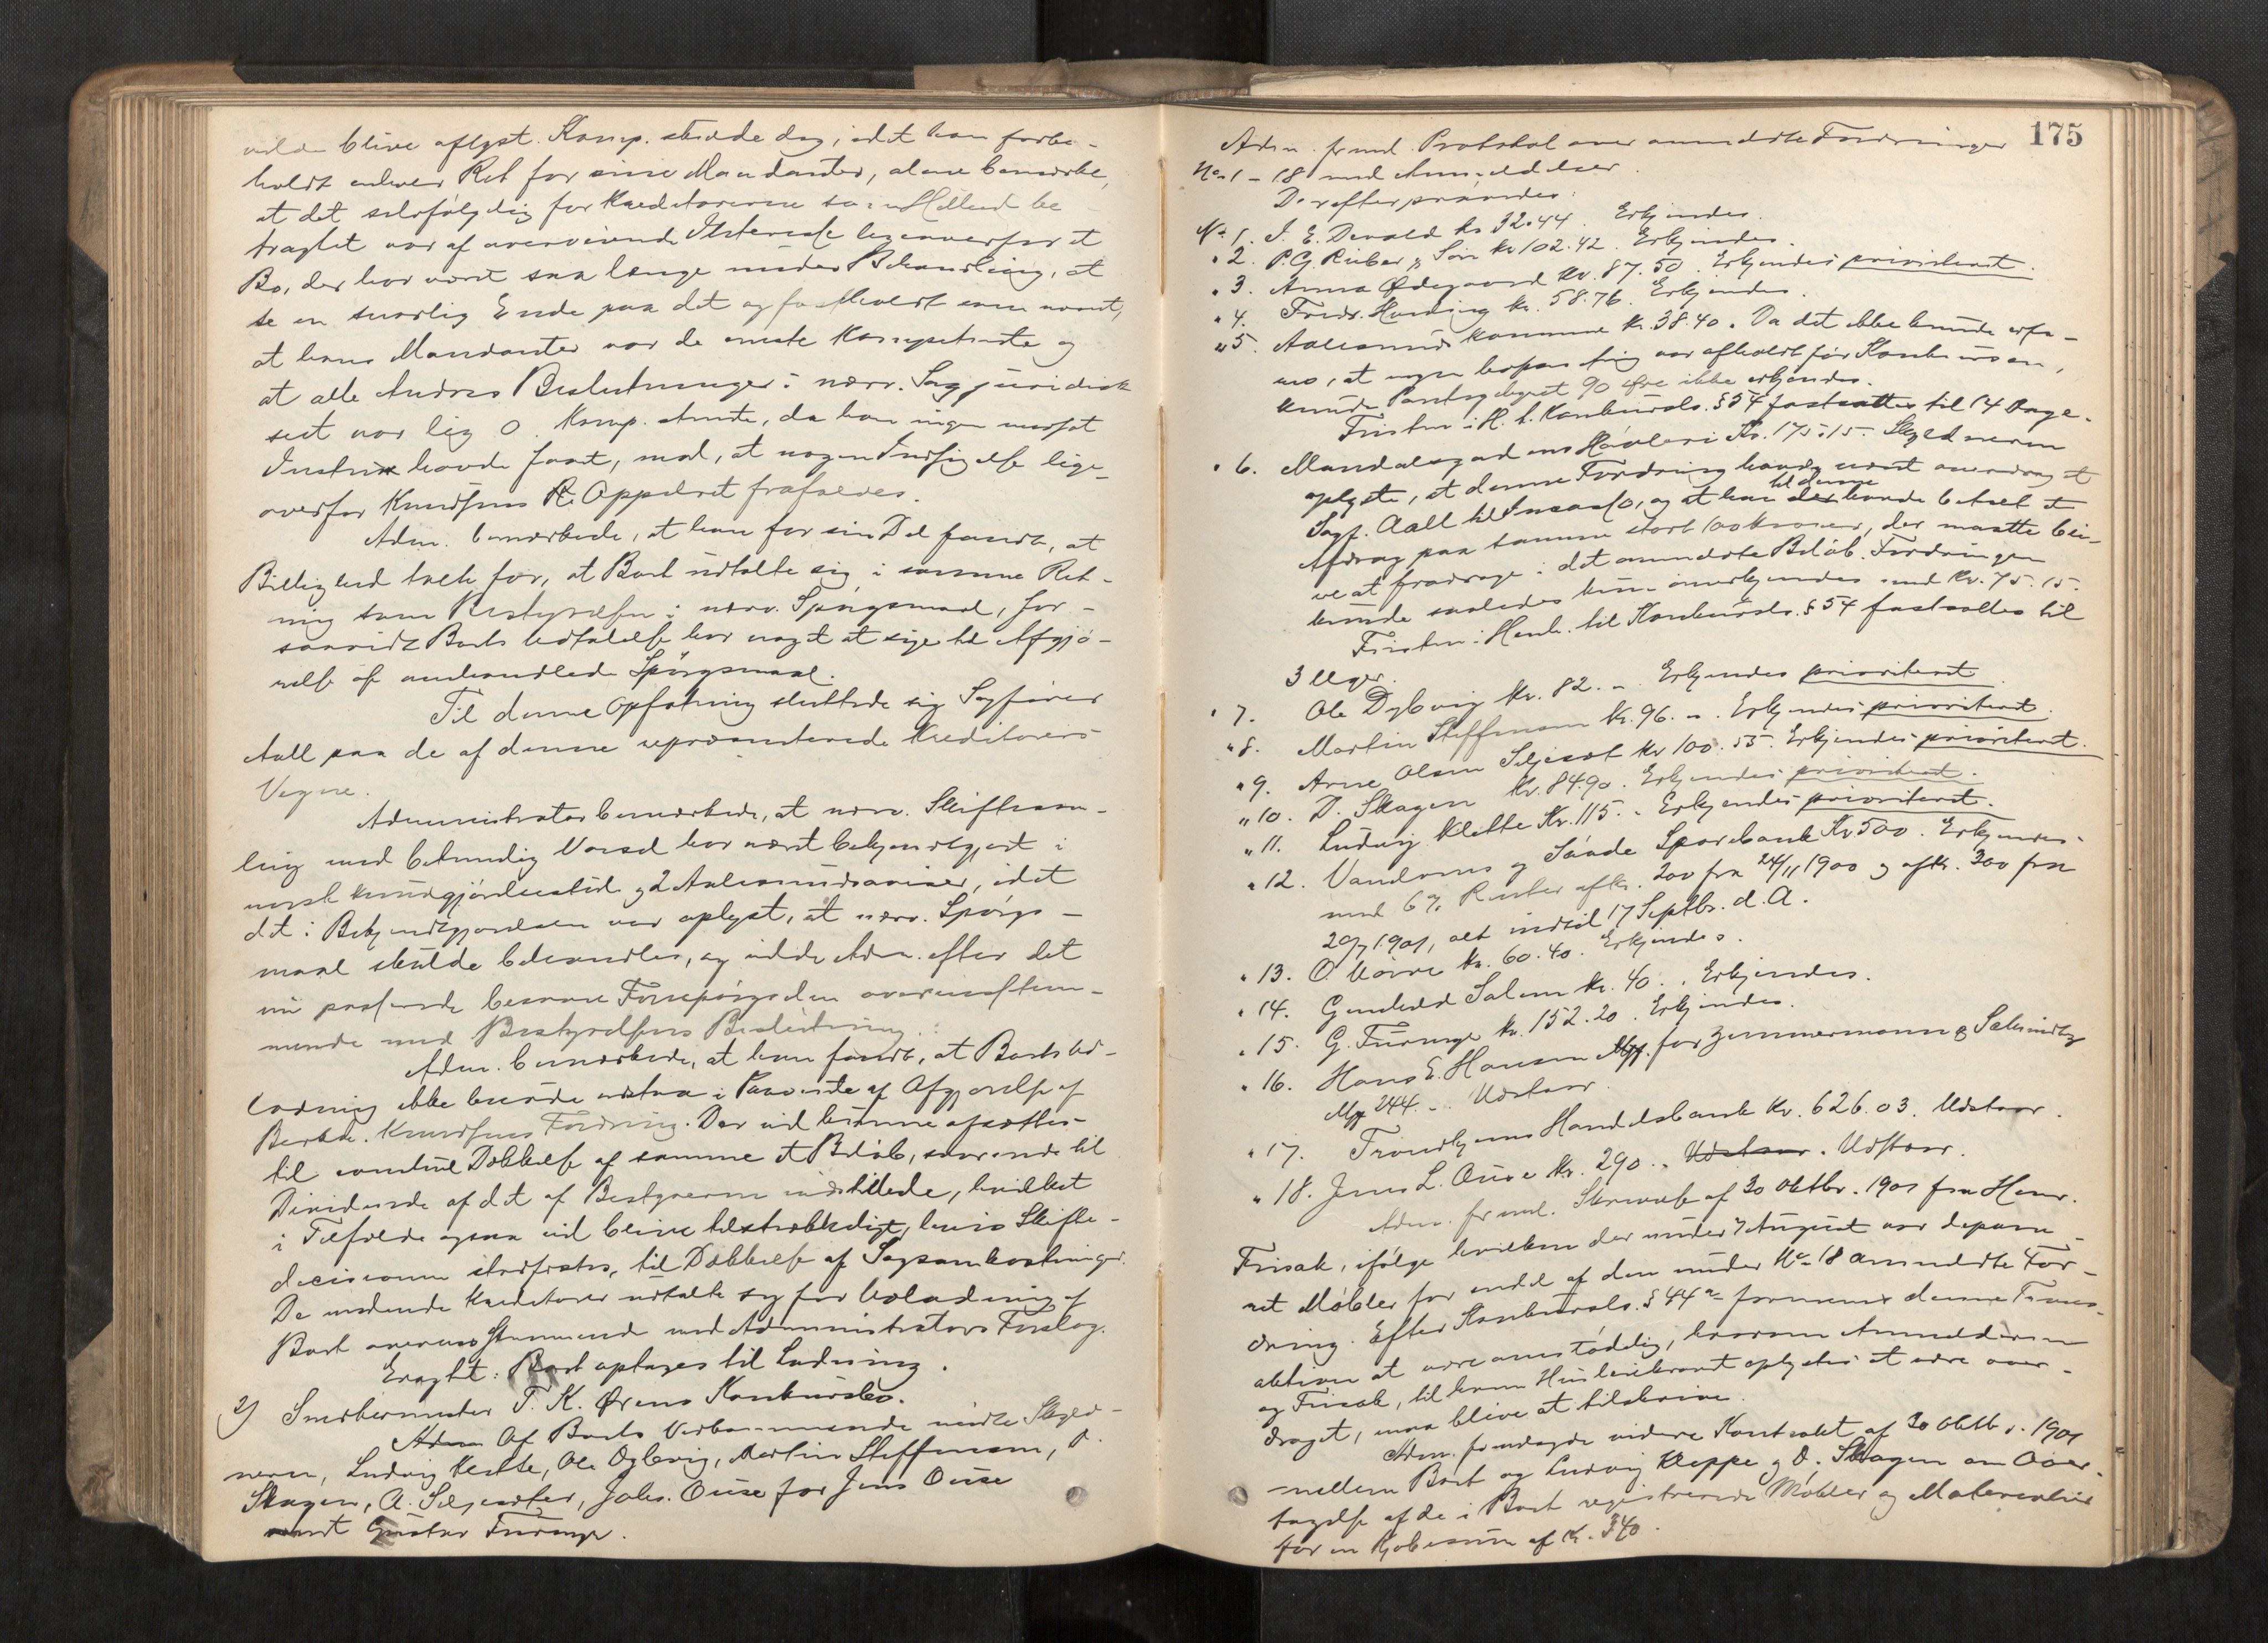 vilde blive aflyst. Komp. skrede dog, idet han forbe-
holdt enhver Ret for sine Mandanter, alene bemærke,
at det selvfølgelig for Kreditorerne som Helhed be
tragtet var af overveiende Interesse ligeoverfor et
Bo, der har været saa længe under Behandling, at
se en snarlig Ende paa det og fastholdt som nævnt,
at hans Mandanter var de eneste Kompetente og
at alle Andres Beslutninger i nærv. Sag juridisk
seet var lig 0. Komp. , da han ingen
Instrux havde faaet, mod, at nogen Indsigelse lige-
overfor Knudsens Appelret frafaldes.
Adm. bemærkede, at han for sin Del fandt, at
Billighed talte for, at Boet udtalte sig i samme Ret-
ning som Bestyrelsen i nærv. Spörgsmaal, for-
saavidt Boets Udtalelse har noget at sige til Afgjö-
relse af omhandlede Spörgsmaal.
Til denne Opfatning sluttede sig Sagförer
Aall paa de af denne repræsenterede Kreditorers
Vegne.
Administrator bemærkede, at nærv. Skiftesam-
ling med behörig Varsel har været bekjendtgjort i
norsk Kundgjörelsestid. og 2 Aalesundsaviser, idet
det i Bekjendtgjörelsen var oplyst, at nærv. Spörgs-
maal skulde behandles, og vilde Adm. efter det
nu passerede besvare Forespörgselen overensstem-
mende med Bestyrelsens Beslutning.
Adm. bemærkede, at han fandt, at Boets Ud-
lodning ikke burde udstaa i Paavente af Afgjörelse af
Knudsens Fordring. Der vil kunne afsættes
til eventuel Dækkelse af samme et Belöb, svarende til
Dividende af det af Bestyrerne indstillede, hvilket
i Tilfælde ogsaa vil blive tilstrækkeligt, hvis Skifte-
decisionen stadfæstes, til Dækkelse af Sagsomkostninger.
De mödende Kreditorer udtalte sig for Udlodning af
Boet overensstemmende med Administrators Forslag.
Eragtet: Boet optages til Lodning.
2) Smedkermester T. K. Ørens Konkursbo.
Adm Af Boets Vedkommende mödte Skyld-
neren, Ludvig Klette, Ole Dybvig, Martin Steffensen, D.
Skagen, A. Seljeseter, Johs. Ouse for Jens Ouse
samt Gustav Furunge.
175
Adm. freml. Protokol over anmeldte Fordringer
No 1 - 18 med Anmeldelser.
Derefter prövedes:
No 1. J. E. Devold kr 32.44. Erkjendes.
" 2. P. G. Rieber & Sön kr 102.42. Erkjendes.
" 3. Anna Ødegaard kr. 87.50. Erkjendes prioriteret.
" 4. Fredr. Harning kr. 58.76. Erkjendes.
" 5. Aalesunds Kommune kr. 38.40. Da det ikke kunde erfa-
res, at nogen var afholdt för Konkursen,
kunde Pantegebyret 90 öre ikke erkjendes.
Fristen i H. t. Konkursls. § 54 fastsattes til 14 Dage.
" 6. Mandalsgadens Hövleri Kr. 175.15. Skyldneren
oplyste, at denne Fordring havde været overdraget
Sagf. Aall til Incasso, og at han til denne havde betalt et
Afdrag paa samme stort 100 kroner, der maatte bli-
ve at fradrage i det anmeldte Belöb. Fordringen
kunde saaledes kun anerkjendes med Kr. 75.15.
Fristen i Henh. til Konkursls. § 54 fastsattes til
3 Uger.
" 7. Ole Dybvig kr. 82. - Erkjendes prioriteret.
" 8. Martin Steffensen kr. 96. -. Erkjendes prioriteret.
" 9. Arne Olsen Seljeset kr 100.55. Erkjendes prioriteret.
" 10. D. Skagen kr. 84.90. Erkjendes prioriteret.
" 11. Ludvig Klette Kr. 115. -. Erkjendes prioriteret.
" 12. Vandvens og Saude Sparebank Kr 500. Erkjendes
med 6% Renter af kr. 200 fra 24/11 1900 og af kr. 300 fra
20/7 1901, alt indtil 17 Septbr. d. A.
" 13. O. Vörre kr. 60.40. Erkjendes.
" 14. Gunhild Salem kr. 40. -. Erkjendes.
" 15. G. Furunge kr. 152.20. Erkjendes.
" 16. Hans E. Hansen for Zimmermann &
244. -. Udstaar.
" 17. Trondhjems Handelsbank Kr. 626.03. Udstaar.
" 18. Jens L. Ouse kr. 290. -. Udstaar. Udstaar.
Adm. freml. Skrivelse af 30 Oktbr. 1901 fra Henr.
Frisak, ifölge hvilken der under 7 August var depone-
ret Möbler for endel af den under No 18 anmeldte For-
dring. Efter Konkursls. § 44 formenes denne Trans-
aktion at være omstödelig, hvorom Anmelderen
og Frisak, til hvem Huslejekravet oplystes at være over-
draget, maa blive at tilskrive.
Adm. fremlagde videre Kontrakt af 30 Oktbr. 1901
mellem Boet og Ludvig Kleppe og D. Skagen om Over-
tagelse af de i Boet registrerede Möbler og Materialier
for en Kjöbesum af kr. 340.